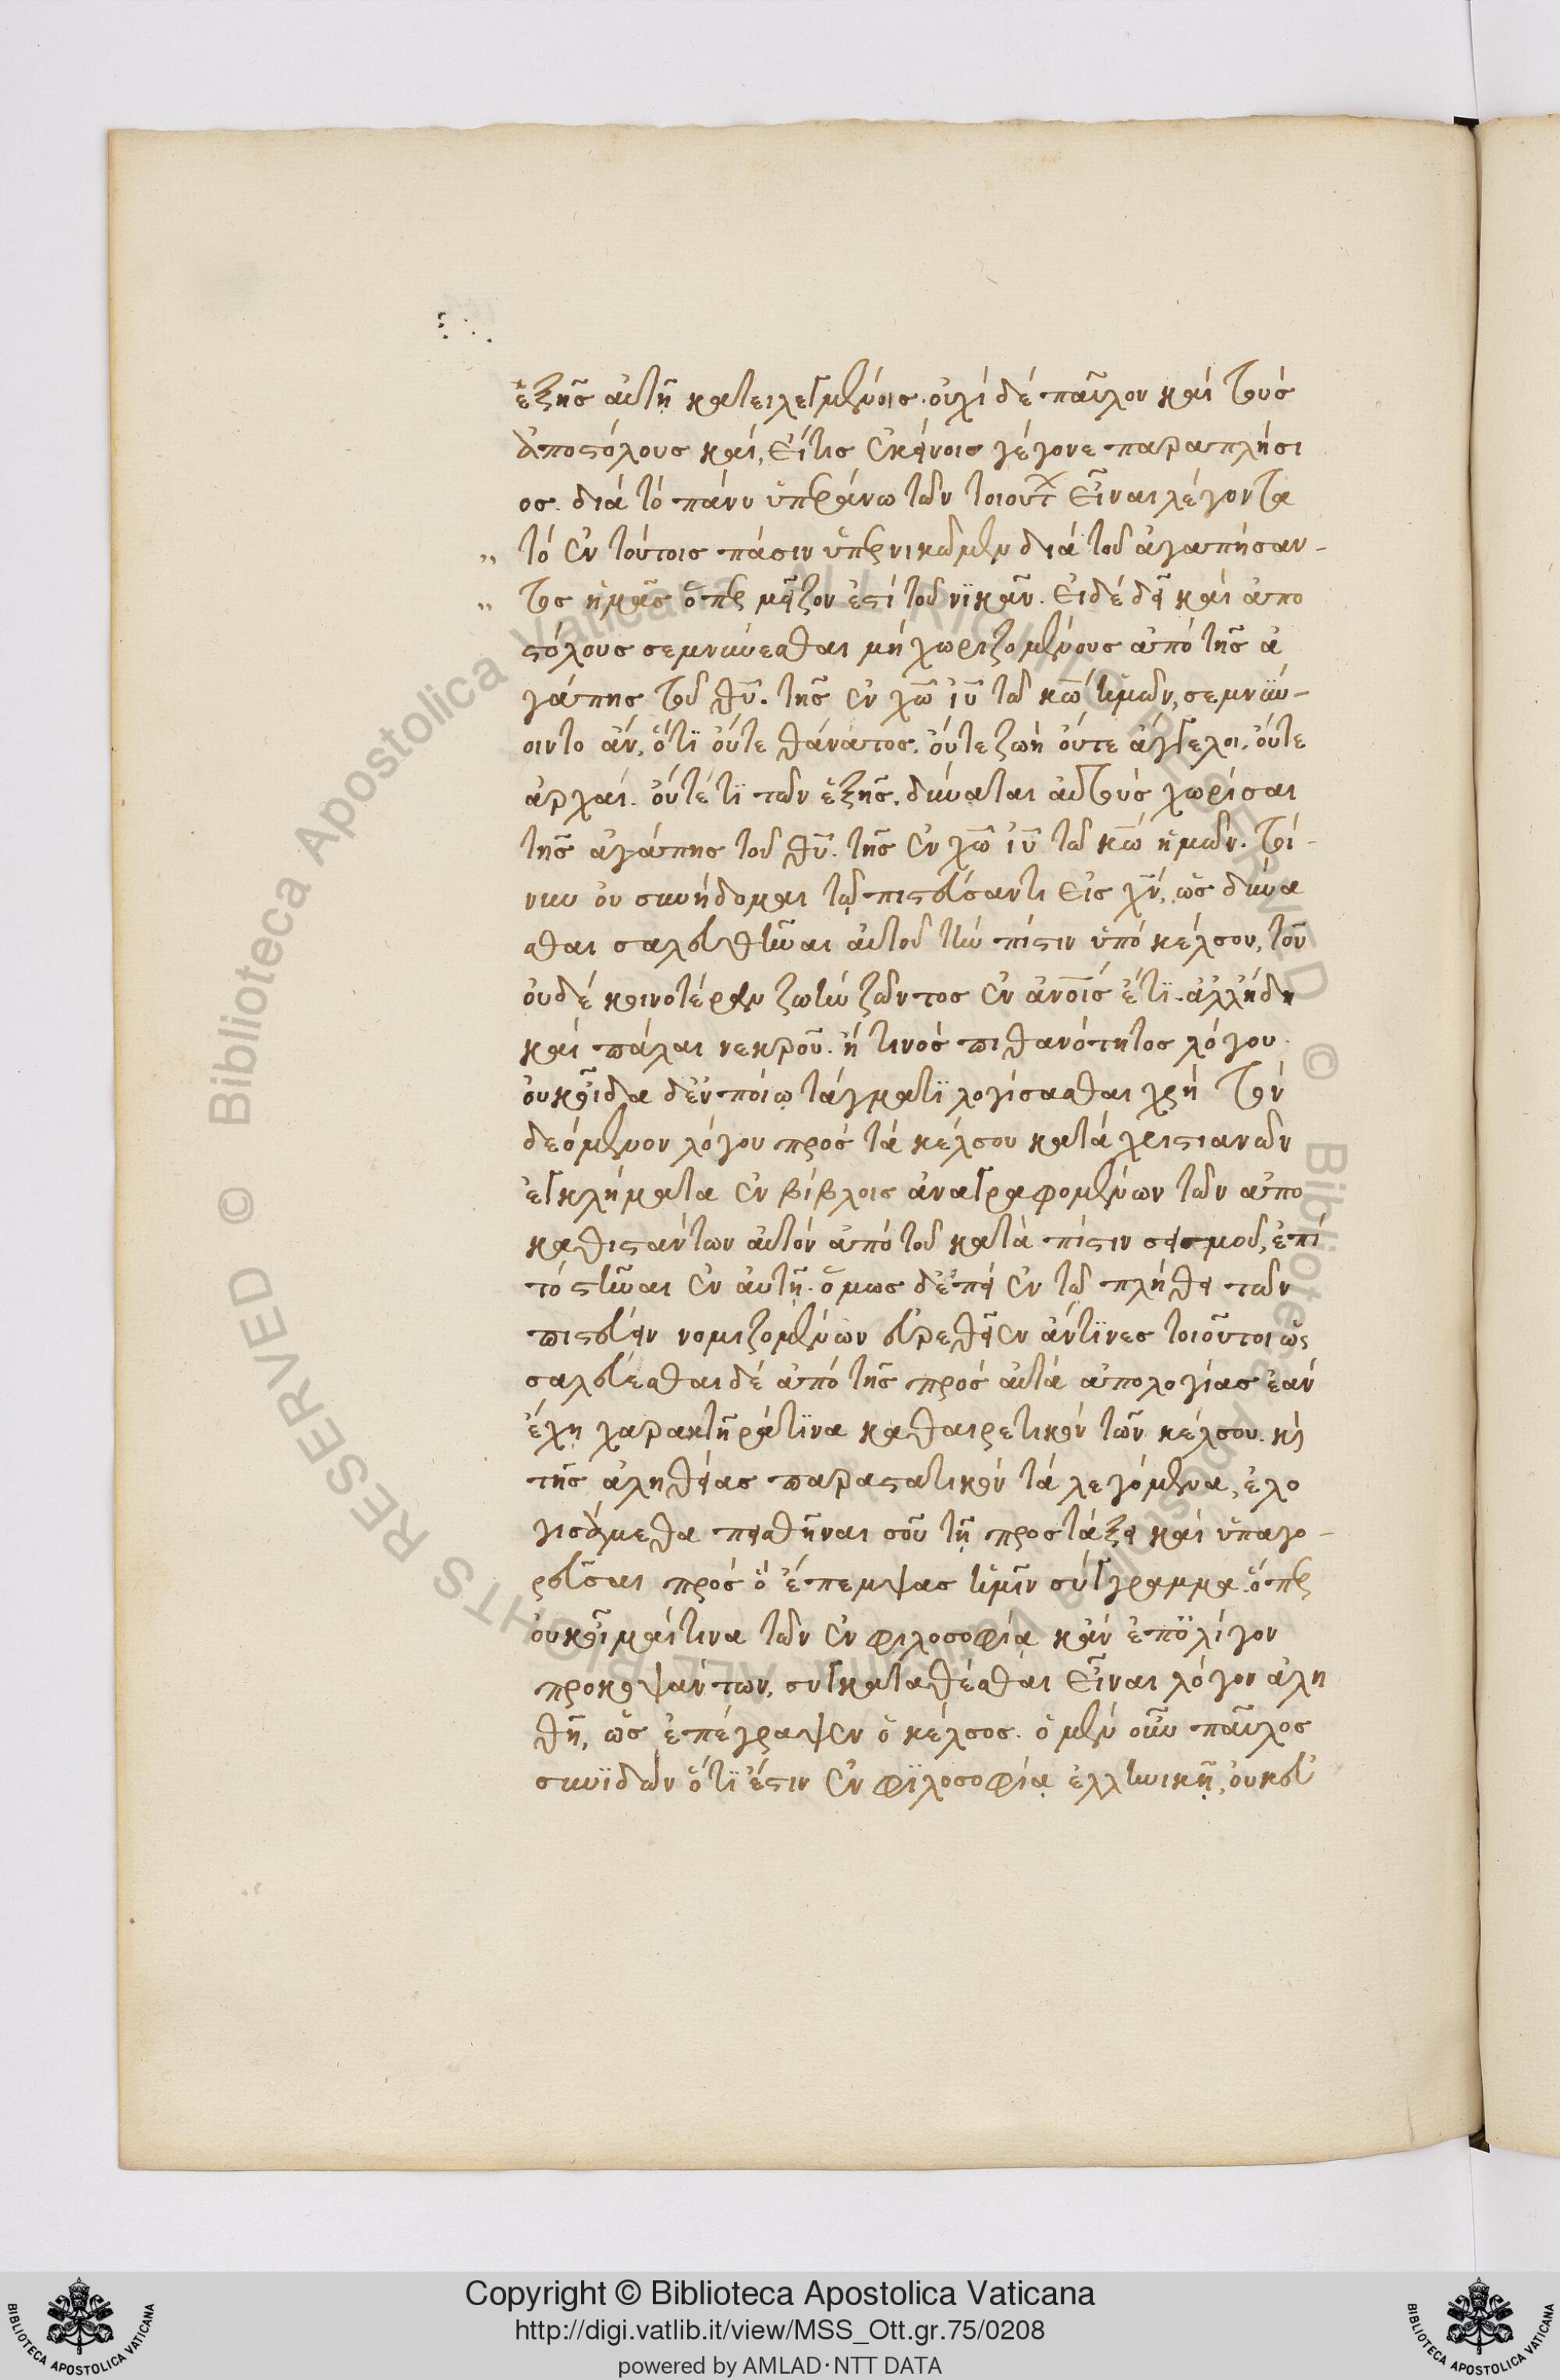 ἑξῆς αὐτῇ κατειλεγμένοις. οὐχὶ δὲ παῦλον καὶ τοὺς
ἀποστόλους καὶ, εἴτις ἐκείνοις γέγονε παραπλήσι
ος. διὰ τὸ πάνυ ὑπεράνω τῶν τοιούτ εἶναι λέγοντα
„ τὸ ἐν τούτοις πᾶσιν ὑπερνικῶμεν διὰ τοῦ ἀγαπήσαν-
„ τος ἡμᾶς ὅπερ μεῖζον ἐστὶ τοῦ νϊκᾶν. εἰ δὲ δεῖ καὶ ἀπο
στόλους σεμνύνεσθαι μὴ χωριζομένους ἀπὸ τῆς ἀ
γάπης τοῦ θῦ. τῆς ἐν χῶ ἰῦ τῶ κῶ ἡμῶν, σεμνύν-
οιντο ἂν, ὅτϊ οὔτε θάνατος. οὔτε ζωὴ οὔτε ἄγγελοι. οὔτε
ἀρχαὶ. οὔτέ τϊ τῶν ἑξῆς. δύναται αὐτοὺς χωρίσαι
τῆς ἀγάπης τοῦ θῦ. τῆς ἐν χῶ ἰῦ τῶ κῶ ἡμῶν. τοί-
νυν οὐ συνήδομαι τῷ πιστεύσαντι εἰς χν, ὡς δύνα
σθαι σαλευθῆναι αὐτοῦ τὴν πίστιν ὑπὸ κέλσου, τοῦ
οὐδὲ κοινοτέραν ζωὴν ζῶντος ἐν ἀνοις ἔτϊ. ἀλλ' ἤδη
καὶ πάλαι νεκροῦ. ἤ τινος πιθανότητος λόγου.
οὐκ οἶδα δ' ἐν ποίῳ τάγματϊ λογίσασθαι χρὴ τὸν
δεόμενον λόγου πρὸς τὰ κέλσου κατὰ χριστιανῶν
ἐγκλήματα ἐν βίβλοις ἀναγραφομένων τῶν ἀπο
καθιστάντων αὐτὸν ἀπὸ τοῦ κατὰ πίστιν σεισμοῦ, ἐπὶ
τὸ στῆναι ἐν αὐτῇ. ὅμως δ' ἐπεὶ ἐν τῷ πλήθει τῶν
πιστεύειν νομιζομένων εὑρεθεῖεν ἄν τϊνες τοιοῦτοι ὡς
σαλεύεσθαι δὲ ἀπὸ τῆς πρὸς αὐτὰ ἀπολογίας ἐὰν
ἔχῃ χαρακτῆρά τϊνα καθαιρετικὸν τῶν κέλσου. καὶ
τῆς ἀληθείας παραστατικὸν τὰ λεγόμενα, ἐλο
γισάμεθα πεισθῆναι σοῦ τῇ προστάξει καὶ ὑπαγο-
ρεῦσαι πρὸς ὃ ἔπεμψας ἡμῖν σύγγραμμα. ὅπερ
οὐκ οἶμαί τινα τῶν ἐν φιλοσοφίᾳ κἂν ἐπ' ὀλίγον
προκοψάντων, συγκαταθέσθαι εἶναι λόγον ἀλη
θῆ, ὡς ἐπέγραψεν ὁ κέλσος. ὁ μὲν οὖν παῦλος
συνϊδὼν ὅτϊ ἔστιν ἐν φϊλοσοφίᾳ ἑλληνικῇ, οὐκ εὐ
Copyright © Biblioteca Apostolica Vaticana
http://digi.vatlib.it/view/MSS_Ott.gr.75/0208
powered by AMLAD·NTT DATA
BIBLIOTECA APOSTOLICA VATICANA
BIBLIOTECA APOSTOLICA VATICANA
Biblioteca Apostolica Vaticana ALL RIGHTS RESERVED © Biblioteca Apostolica Vaticana ALL RIGHTS RESERVED ©